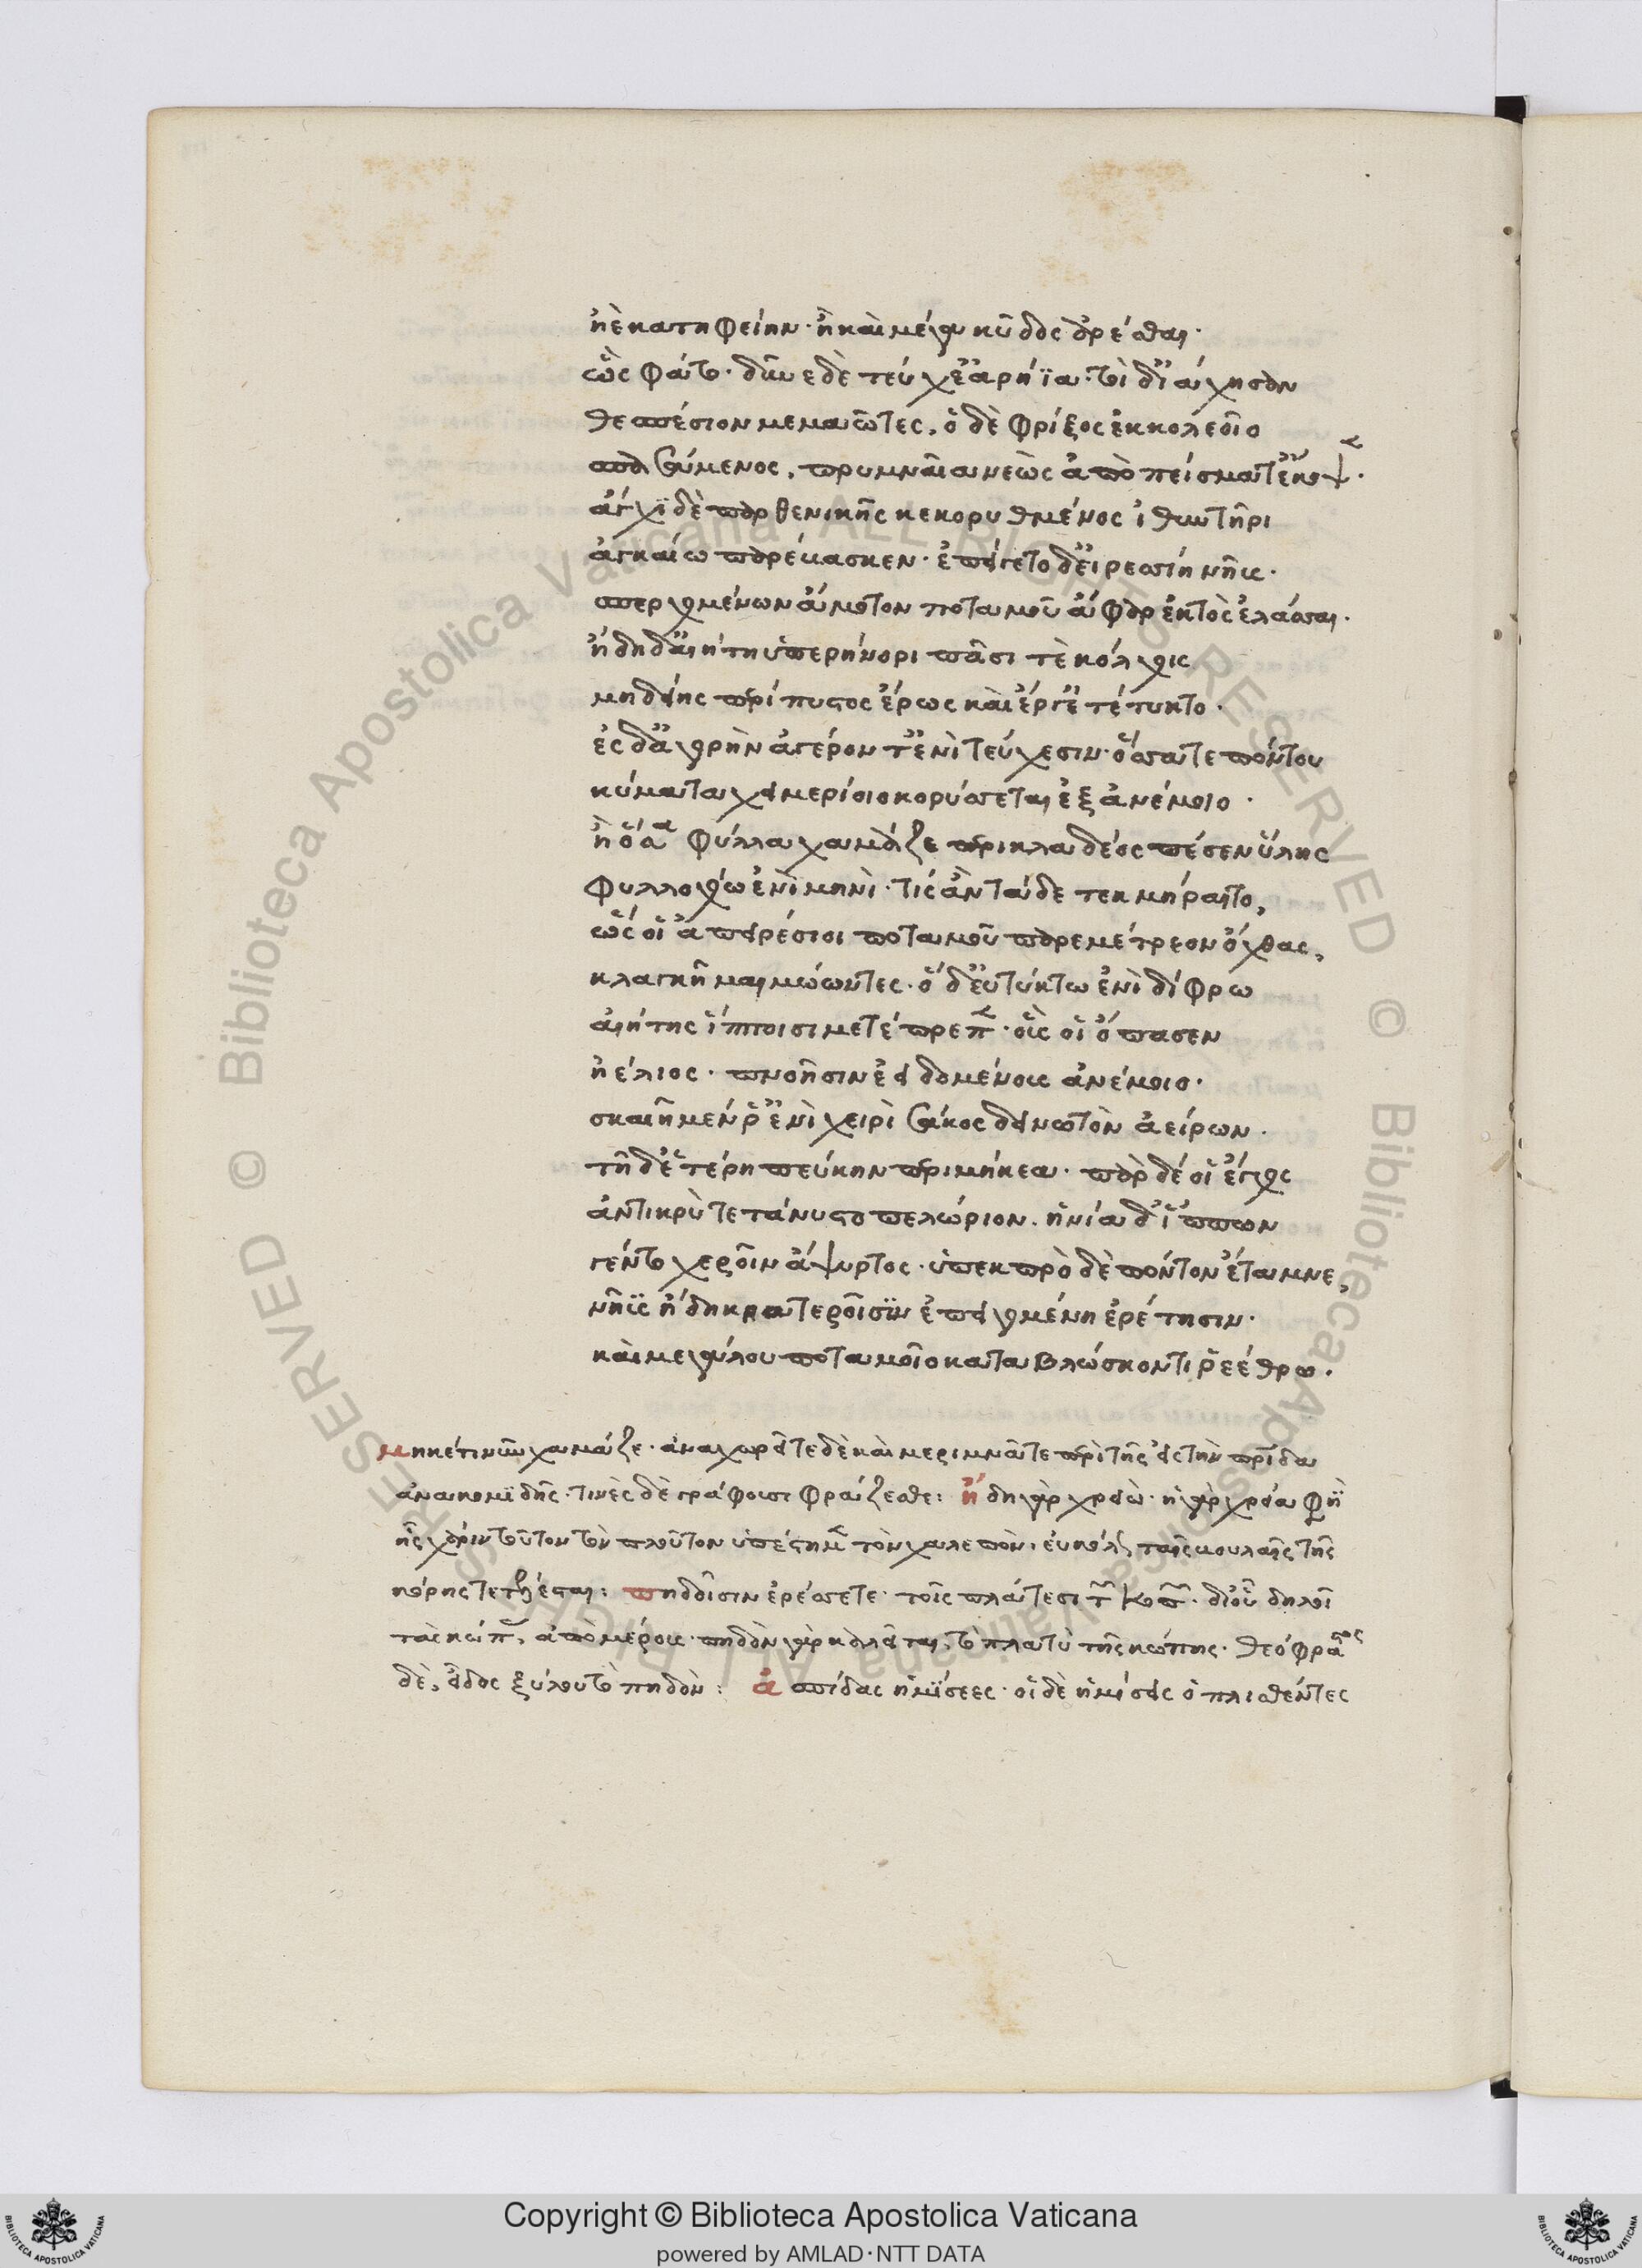 ἠὲ κατηφείην· ἢ καὶ μέγα κῦδος ἀρέσθαι·
ὣς φάτο· δῦνε δὲ τεύχε᾽ ἀρήϊα· τοὶ δ᾽ ἰάχησαν
θεσπέσιον μεμαῶτες, ὁ δὲ ξίφος ἐκ κολεοῖο
σπασσάμενος, πρυμναῖα νεὼς ἀπὸ πείσματ᾽ ἔκοψε·
ἄγχι δὲ παρθενικῆς κεκορυθμένος ἰθυντῆρι
ἀγκαίῳ παρέμασκεν· ἐπείγετο δ᾽ εἰρεσίῃ νηῦς·
σπερχομένων ἄμοτον ποταμοῦ ἄφαρ ἐκτὸς ἐλάσσαι·
ἤδη δ᾽ αἰήτῃ ὑπερήνορι πᾶσί τε κόλχοις
μηδείης περίπυστος ἔρως καὶ ἔργ᾽ ἐτέτυκτο·
ἐς δ᾽ ἀγορὴν ἀγέροντ᾽ ἐνὶ τεύχεσιν· ὅσσα τε πόντου
κύματα χειμερίοιο κορύσσεται ἐξ ἀνέμοιο·
ἢ ὅσα φύλλα χαμᾶζε περικλαδέος πέσεν ὕλης
φυλλοχόῳ ἐνὶ μηνὶ· τίς ἂν τάδε τεκμήραιτο,
ὣς οἱ ἀπειρέσιοι ποταμοῦ παρεμέτρεον ὄχθας,
κλαγγῇ μαιμώοντες· ὁ δ᾽ εὐτύκτῳ ἐνὶ δίφρῳ
αἰήτης ἵπποισι μετέπρεπεν· οὕς οἱ ὄπασεν
ἠέλιος· πνοιῇσιν ἐειδομένους ἀνέμοιο·
σκαιῇ μέν ῥ᾽ ἐνὶ χειρὶ σάκος δινωτὸν ἀείρων·
τῇ δ᾽ ἑτέρῃ πεύκην περιμήκεα· πὰρ δέ οἱ ἔγχος
ἀντικρὺ τετάνυστο πελώριον· ἡνία δ᾽ ἵππων
γέντο χεροῖν ἄψυρτος· ὑπεκπρὸ δὲ πόντον ἔταμνε,
νηῦς ἤδη κρατεροῖσιν ἐπειγομένη ἐρέτῃσιν·
καὶ μεγάλου ποταμοῖο καταβλώσκοντι ῥεέθρῳ·
μηκέτι νῦν χαμάζε· ἀναχωρεῖτε δὲ καὶ μεριμνᾶτε περὶ τῆς εἰς τὴν πατρίδα
ἀνακομιδῆς· τινὲς δὲ γράφουσι φράζεσθε: ἤδη γὰρ χρειὼ· ἡ γὰρ χρεία φησὶ
ἧς χάριν τοῦτον τὸν πλοῦτον ὑπέστημεν τὸν χαλεπὸν, εὐκόλως ταῖς βουλαῖς τῆς
κόρης τετέλεσται: πηδοῖσιν ἐρέσσετε· τοῖς πλάτεσι τῶν κωπῶν· δι᾽ οὗ δηλοῖ
τὰς κώπας, ἀπὸ μέρους· πηδὸν γὰρ καλεῖται, τὸ πλατὺ τῆς κώπης· θεόφραστος
δὲ, εἶδος ξύλου τὸ πηδὸν: ἀσπίδας ἡμίσεες· οἱ δὲ ἡμίσεις ὁπλισθέντες